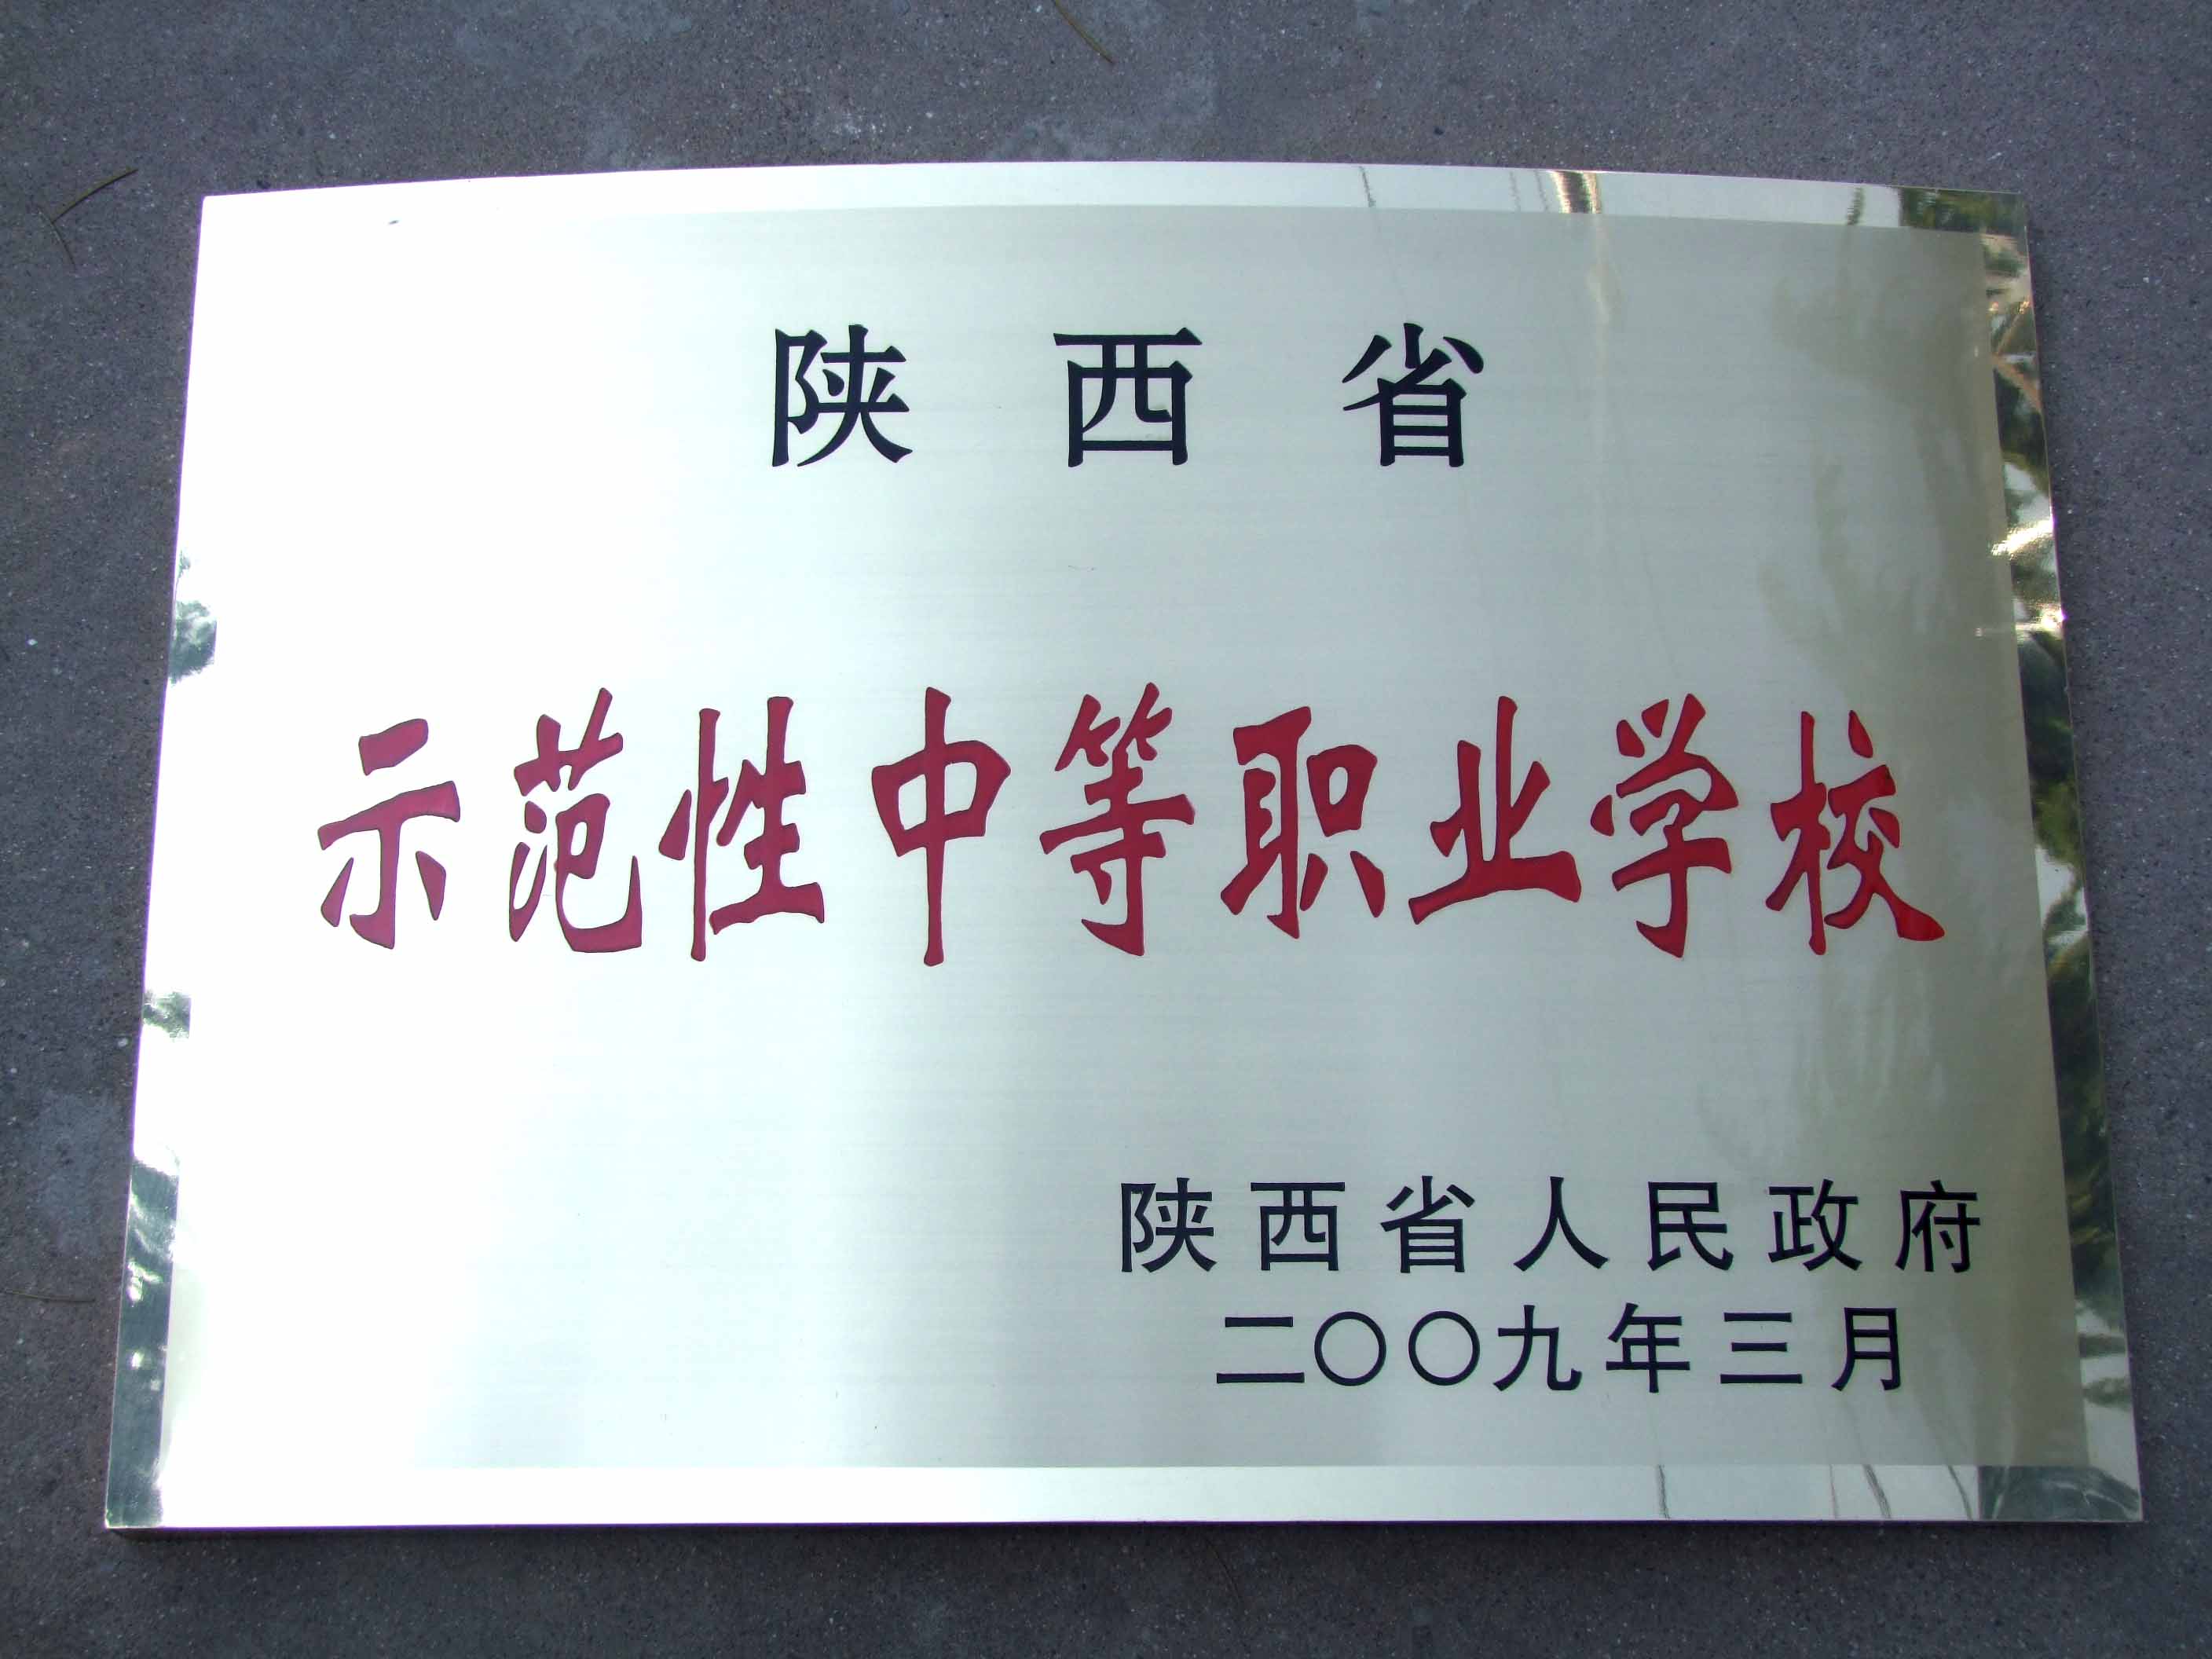 陕西省
示范性中等职业学校
陕西省人民政府
二〇〇九年三月